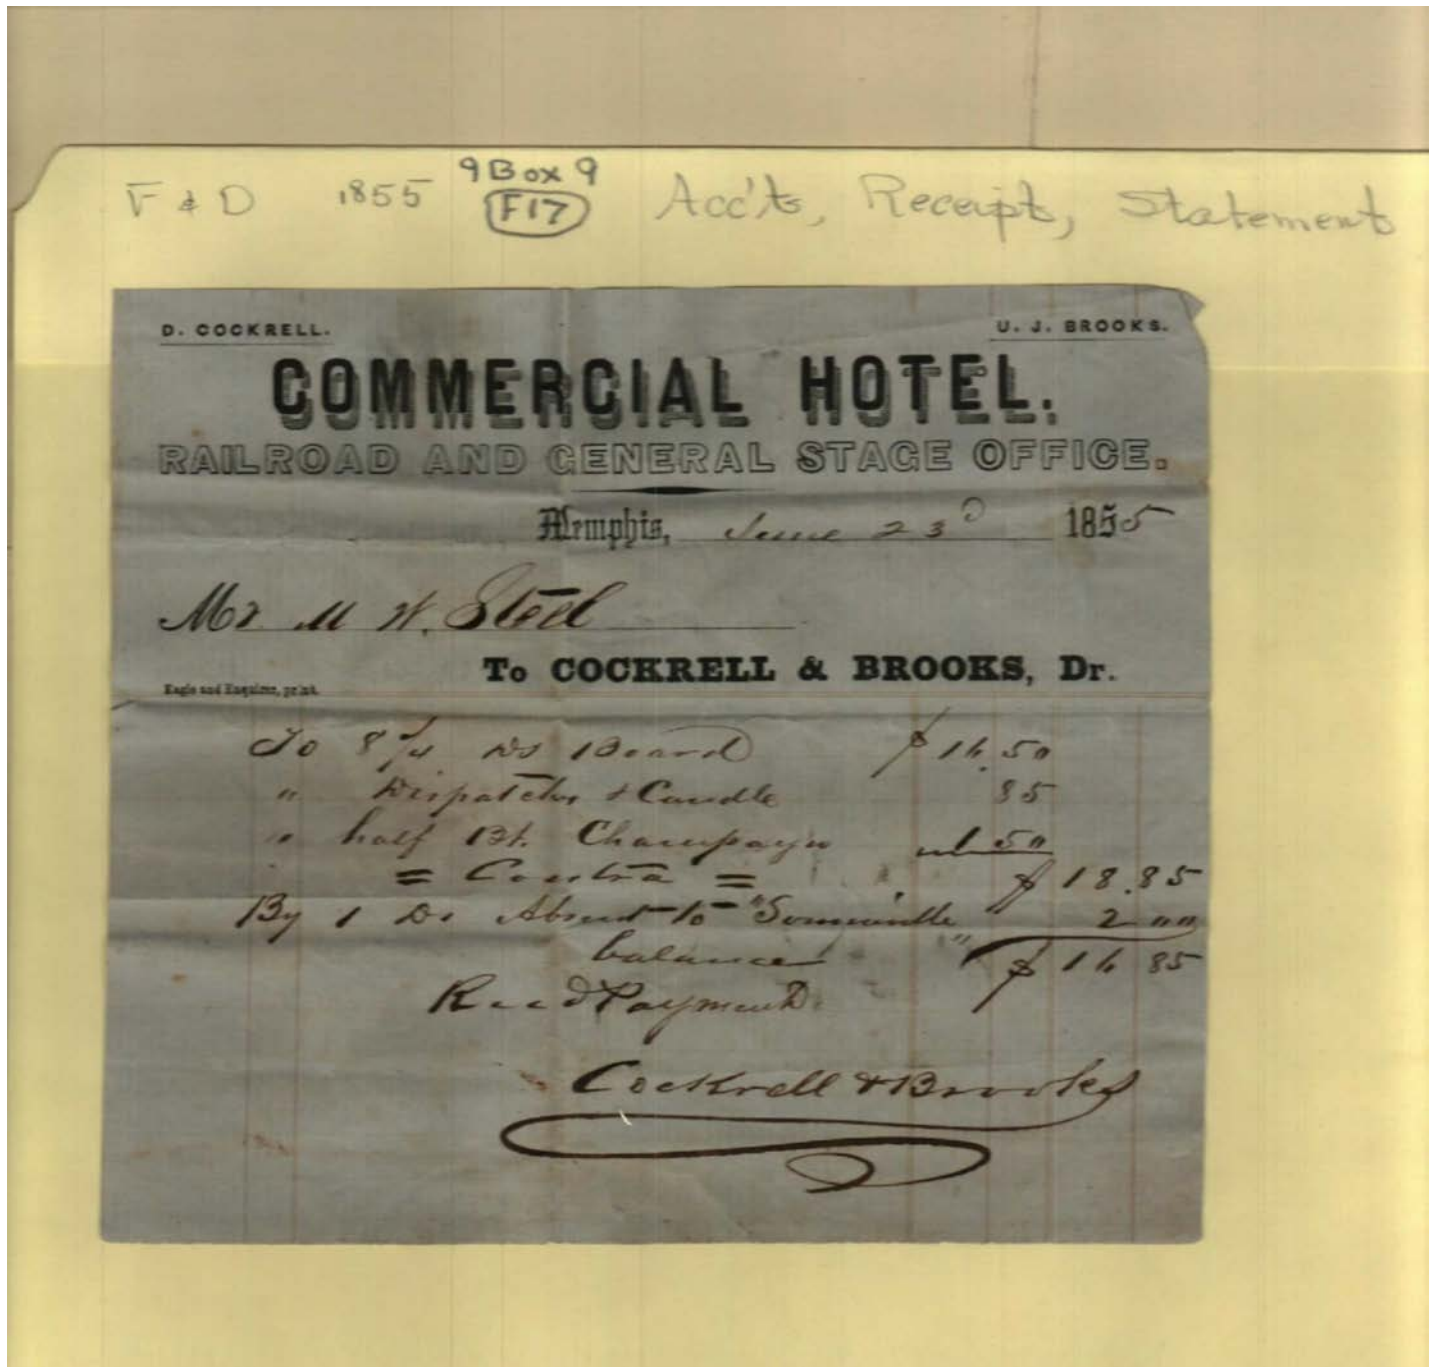 F & D 1855 9 Box 9 F17 Acc'ts, Receipt, Statement
D. COCKRELL. U. J. BROOKS.
COMMERCIAL HOTEL.
RAILROAD AND GENERAL STAGE OFFICE.
Memphis, June 23d 1855
Mr M W. Steel
To COCKRELL & BROOKS, Dr.
Eagle and Enquirer, print.
To 8 1/4 Ds Board $ 16.50
" Dispatches & Candle 85
" half Bt. Champayn 1 50
= Contra = $ 18.85
By 1 Ds Absent to "Sommerville" 2 00
balance $ 16 85
Recd Payment
Cockrell & Brooks